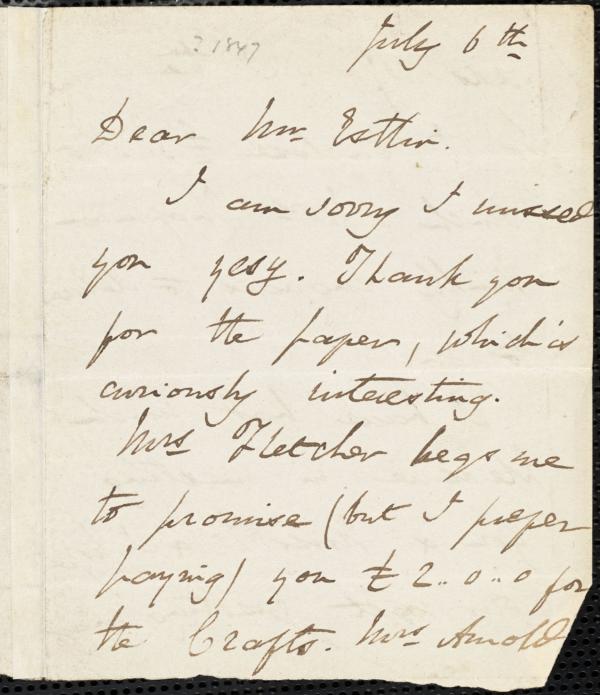 ? 1847
July 6th
Dear Mr Estlin.
I am sorry I missed
you yesy. Thank you
for the paper, which is
curiously interesting.
Mrs Fletcher begs me
to promise (but I prefer
paying) you £2..0..0 for
the Crafts. Mrs Arnold